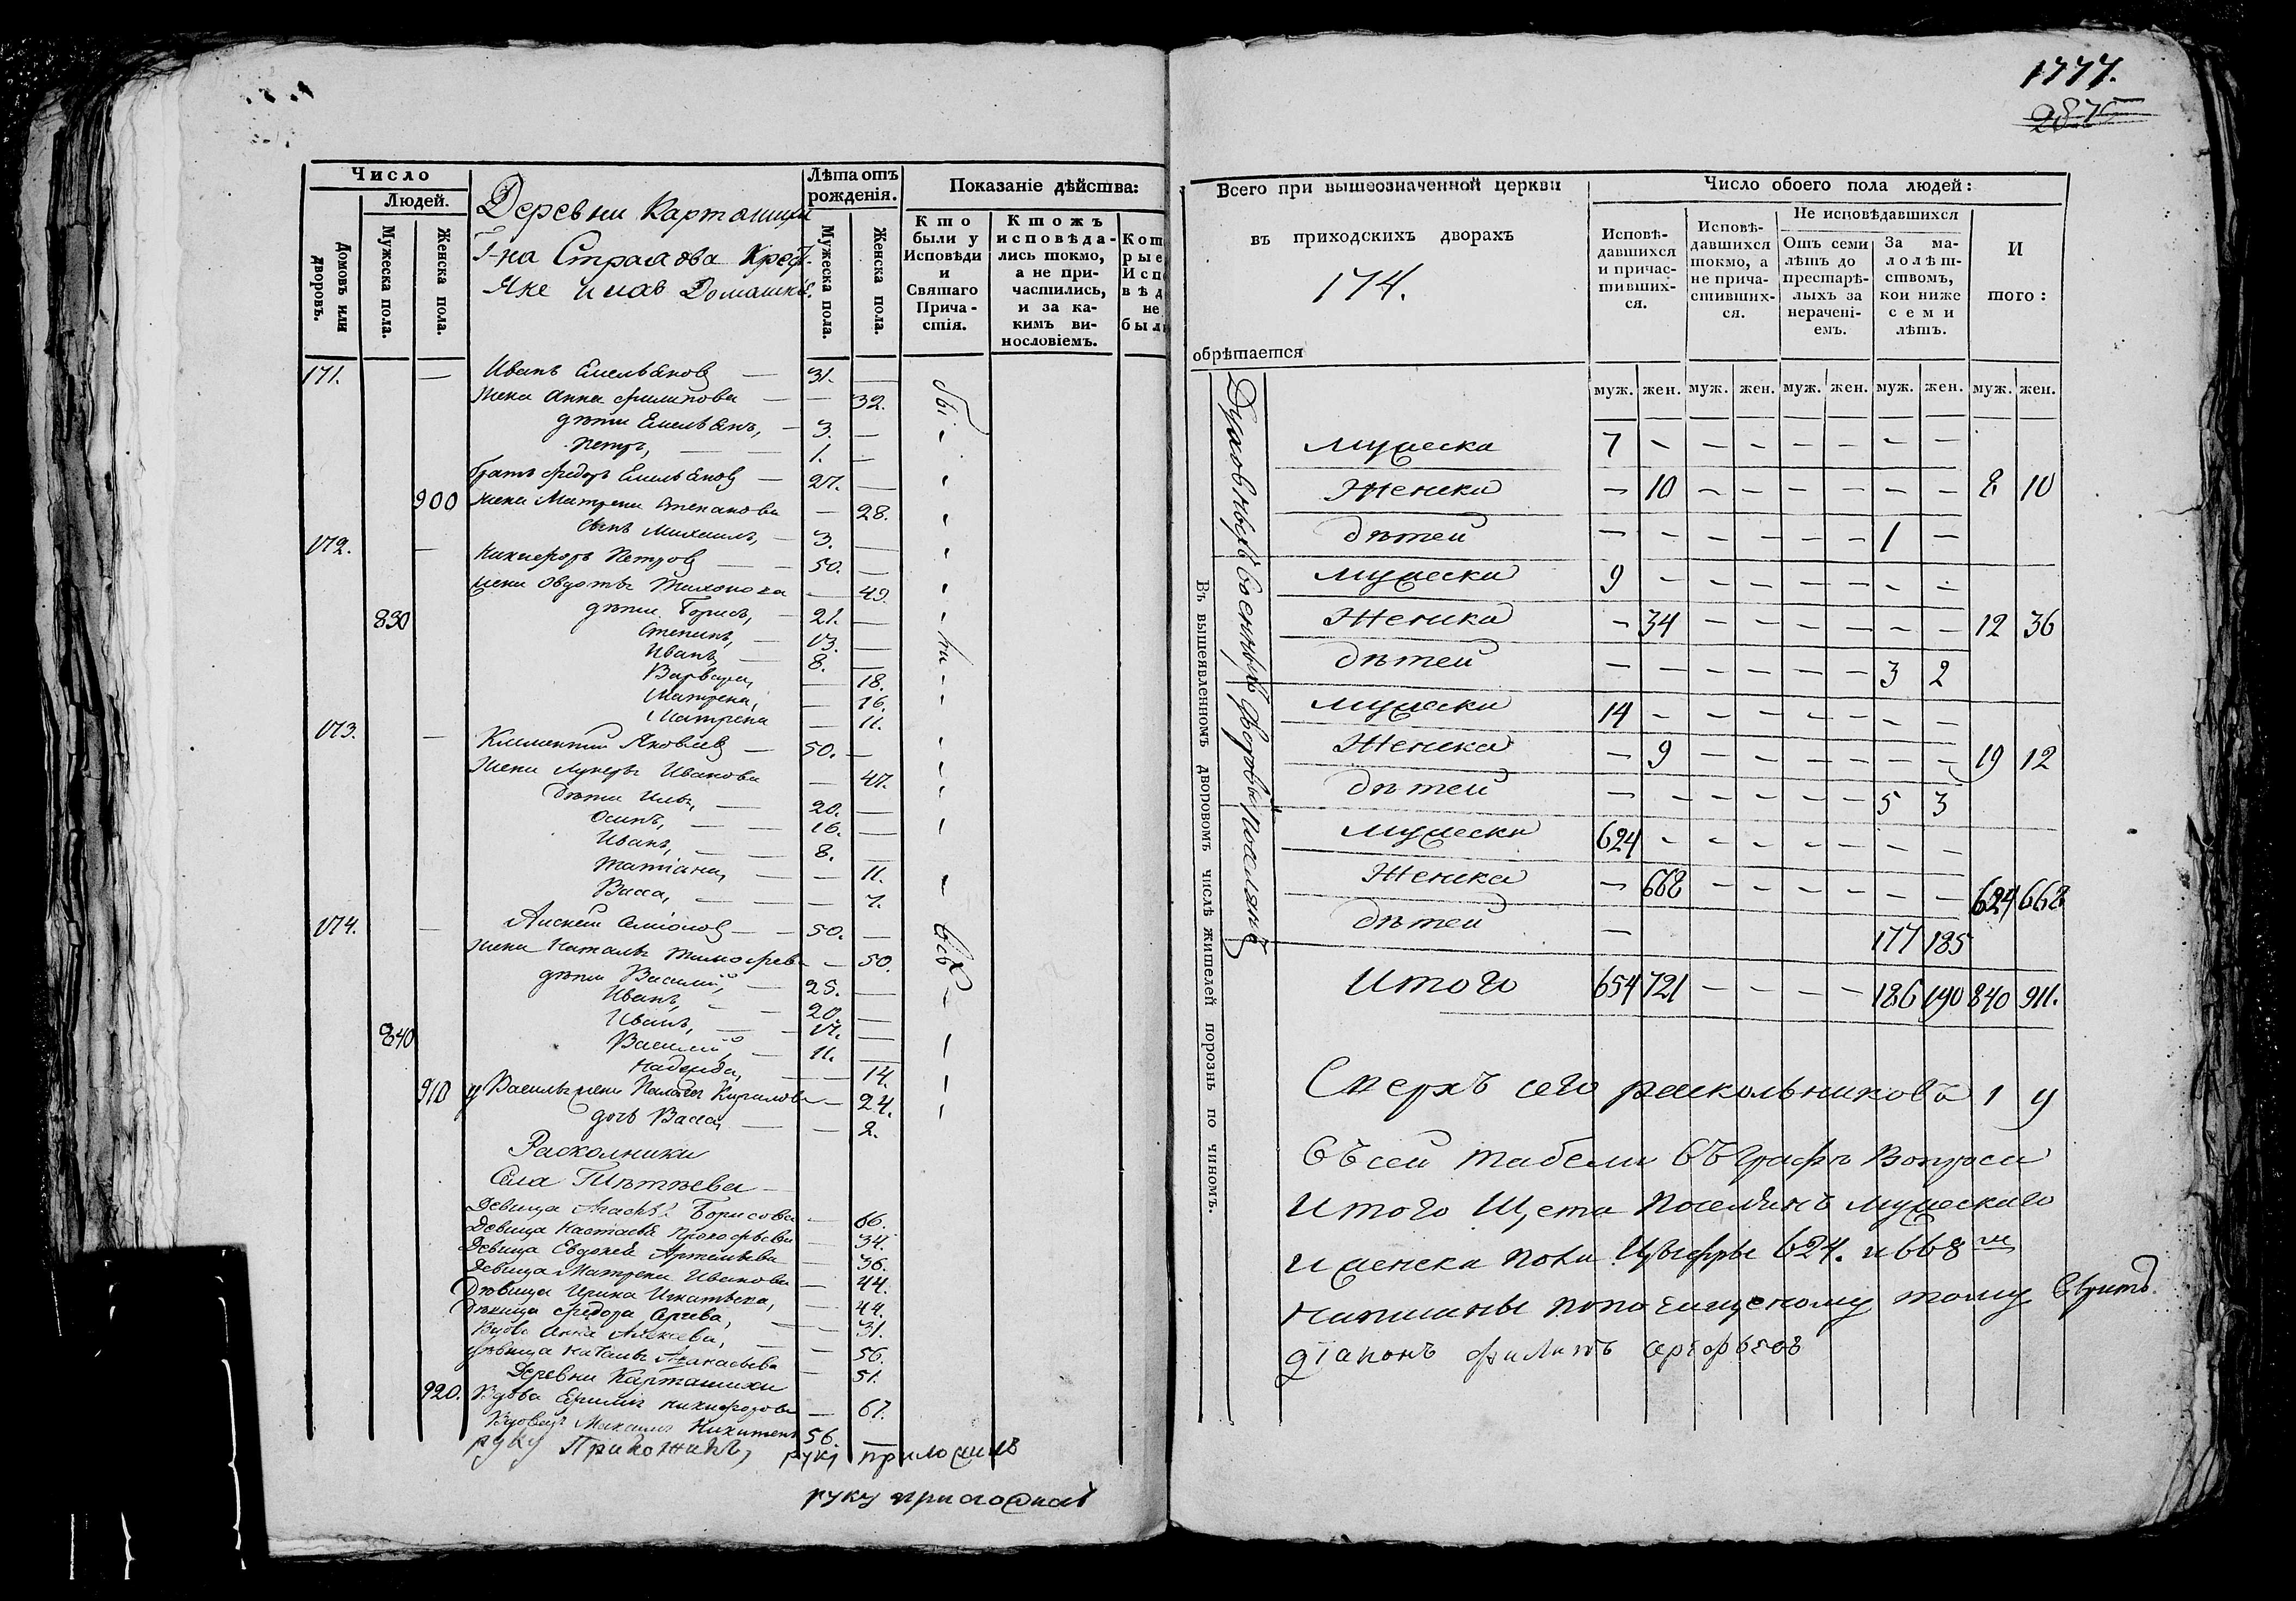 Число
Людей.
Домовъ или дворовъ.
Мужеска пола.
Женска пола.
Деревни Карташихи
Г-на Страхова Крест.
яне и ихъ Домашнія.
Лѣта отъ рожденія.
Мужеска пола.
Женска пола.
Показаніе дѣйства:
Кто были у Исповѣди и Святаго Причастія.
Ктожъ исповѣдались токмо, а не причастились, и за какимъ винословіемъ.
171. — Иванъ Емельяновъ — 31. —
Жена Анна Филипова — — 32.
дѣти Емельянъ, — 3. —
Петръ, — 1. —
братъ Федоръ Емельяновъ — 27. —
900 жена Матрена Степанова — 28.
сынъ Михаилъ, — 3. —
172. — Никифоръ Петровъ — 50. —
жена Овдотья Тихонова — 49.
830 дѣти Борисъ, — 21. —
Степанъ, — 13. —
Иванъ, — 8. —
Варвара, — 18.
Матрена, — 16.
Матрена — 11.
173. — Климентий Яковлевъ — 50. —
Жена Лукерья Иванова — 47.
Дѣти Илья, — 20. —
Осипъ, — 16. —
Иванъ, — 8. —
Татіана, — 11.
Васса, — 7.
174. — Алексей Семіоновъ — 50. —
Жена Наталья Тимофеева — 50.
дѣти Василий, — 25. —
Иванъ, — 20. —
Иванъ, — 17. —
840 Василий, — 11. —
Надежда, — 14.
910 у Василья жена Пелагея Кирилова — 24.
дочь Васса, — 2.
были
всѣ
Раскольники
Села
Девица Агафья Борисова — 66.
Девица Настасья Прокофьева — 34.
Девица Евдокея Артемьева — 36.
Девица Матрена Иванова — 44.
Дѣвица Ирина Игнатьева, — 44.
Дѣвица Федора — 31.
Вдова Анна Алексеева, — 56.
дѣвица Наталья Афанасьева — 51.
Деревни Карташихи
920. Вдова Никифорова — 67.
Вдовецъ Михаилъ Никитинъ 56. —
руку Приложилъ, руку приложилъ
руку приложилъ
1777.
2875
Всего при вышеозначенной церкви
въ приходскихъ дворахъ
174.
обрѣтается
Число обоего пола людей:
Исповѣдавшихся и причастившихся.
Исповѣдавшихся токмо, а не причастившихся.
Не исповѣдавшихся
Отъ семи лѣтъ до престарѣлыхъ за нераченіемъ.
За малолѣтствомъ, кои ниже семи лѣтъ.
И того:
муж. жен. муж. жен. муж. жен. муж. жен. муж. жен.
Въ вышеявленномъ дворовомъ числѣ жителей порознь по чиномъ.
Духовныхъ
Военныхъ
Дворовыхъ
Поселянъ
Мужеска 7 — — — — — — —
Женска — 10 — — — — — — 8 10
дѣтей — — — — — — 1 —
Мужеска 9 — — — — — — —
Женска — 34 — — — — — — 12 36
дѣтей — — — — — — 3 2
Мужеска 14 — — — — — — —
Женска — 9 — — — — — — 19 12
дѣтей — — — — — — 5 3
Мужеска 624 — — — — — — —
Женска — 668 — — — — — — 624 668
дѣтей — 177 185
Итого 654 721 — — — — 186 190 840 911.
Сверхъ сего раскольниковъ 1 9
Въ сей табели въ графѣ
Итого Щета Поселянъ мужескаго
и женска пола Цыфры 624. и 668 ми
написаны по потому верить.
діаконъ филипъ